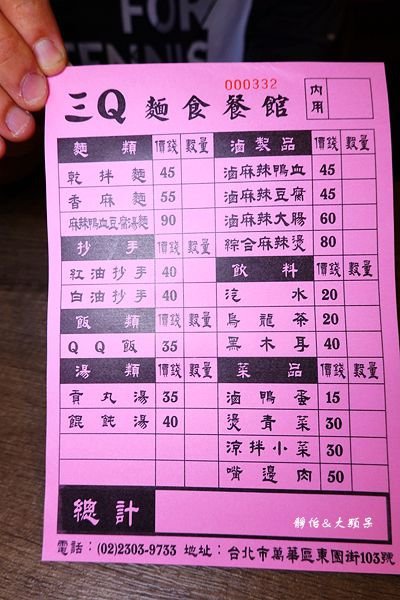 FOR
TENNIS
000332
三Q 麵食餐館
內用
麵類 價錢 數量
乾拌麵 45
香麻麵 55
麻辣鴨血豆腐湯麵 90
抄手 價錢 數量
紅油抄手 40
白油抄手 40
飯類 價錢 數量
QQ飯 35
湯類 價錢 數量
貢丸湯 35
餛飩湯 40
滷製品 價錢 數量
滷麻辣鴨血 45
滷麻辣豆腐 45
滷麻辣大腸 60
綜合麻辣燙 80
飲料 價錢 數量
汽水 20
烏龍茶 20
黑木耳 40
菜品 價錢 數量
滷鴨蛋 15
燙青菜 30
涼拌小菜 30
嘴邊肉 50
總計
靜怡&大顆呆
電話：(02)2303-9733 地址：台北市萬華區東園街103號